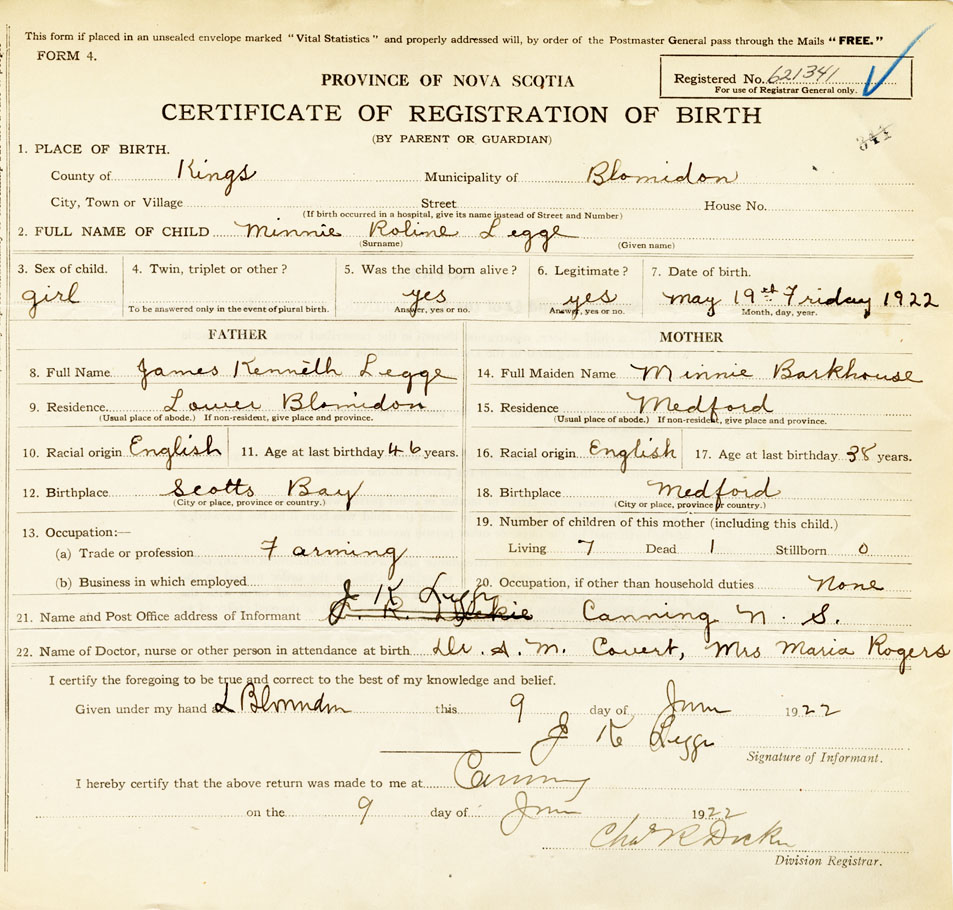 This form if placed in an unsealed envelope marked "Vital Statistics" and properly addressed will, by order of the Postmaster General pass through the Mails "FREE."
FORM 4.
PROVINCE OF NOVA SCOTIA
Registered No. 621341
For use of Registrar General only.
CERTIFICATE OF REGISTRATION OF BIRTH
(BY PARENT OR GUARDIAN)
1. PLACE OF BIRTH.
County of Kings Municipality of Blomidon
City, Town or Village Street House No.
(If birth occurred in a hospital, give its name instead of Street and Number)
2. FULL NAME OF CHILD Minnie Roline Legge
(Surname) (Given name)
3. Sex of child. 4. Twin, triplet or other? 5. Was the child born alive? 6. Legitimate? 7. Date of birth.
girl yes yes May 19th Friday 1922
To be answered only in the event of plural birth. Answer, yes or no. Answer, yes or no. Month, day, year.
FATHER MOTHER
8. Full Name James Kenneth Legge 14. Full Maiden Name Minnie Barkhouse
9. Residence Lower Blomidon 15. Residence Medford
(Usual place of abode.) If non-resident, give place and province. (Usual place of abode.) If non-resident, give place and province.
10. Racial origin English 11. Age at last birthday 46 years. 16. Racial origin English 17. Age at last birthday 38 years.
12. Birthplace Scotts Bay 18. Birthplace Medford
(City or place, province or country.) (City or place, province or country.)
13. Occupation:— 19. Number of children of this mother (including this child.)
(a) Trade or profession Farming Living 7 Dead 1 Stillborn 0
(b) Business in which employed 20. Occupation, if other than household duties None
J K Legge
21. Name and Post Office address of Informant Canning N. S.
22. Name of Doctor, nurse or other person in attendance at birth Dr. A. M. Covert, Mrs Maria Rogers
I certify the foregoing to be true and correct to the best of my knowledge and belief.
Given under my hand at L Blomidon this 9 day of June 1922
J K Legge
Signature of Informant.
I hereby certify that the above return was made to me at Canning
on the 9 day of June 1922
Chas R Dickie
Division Registrar.